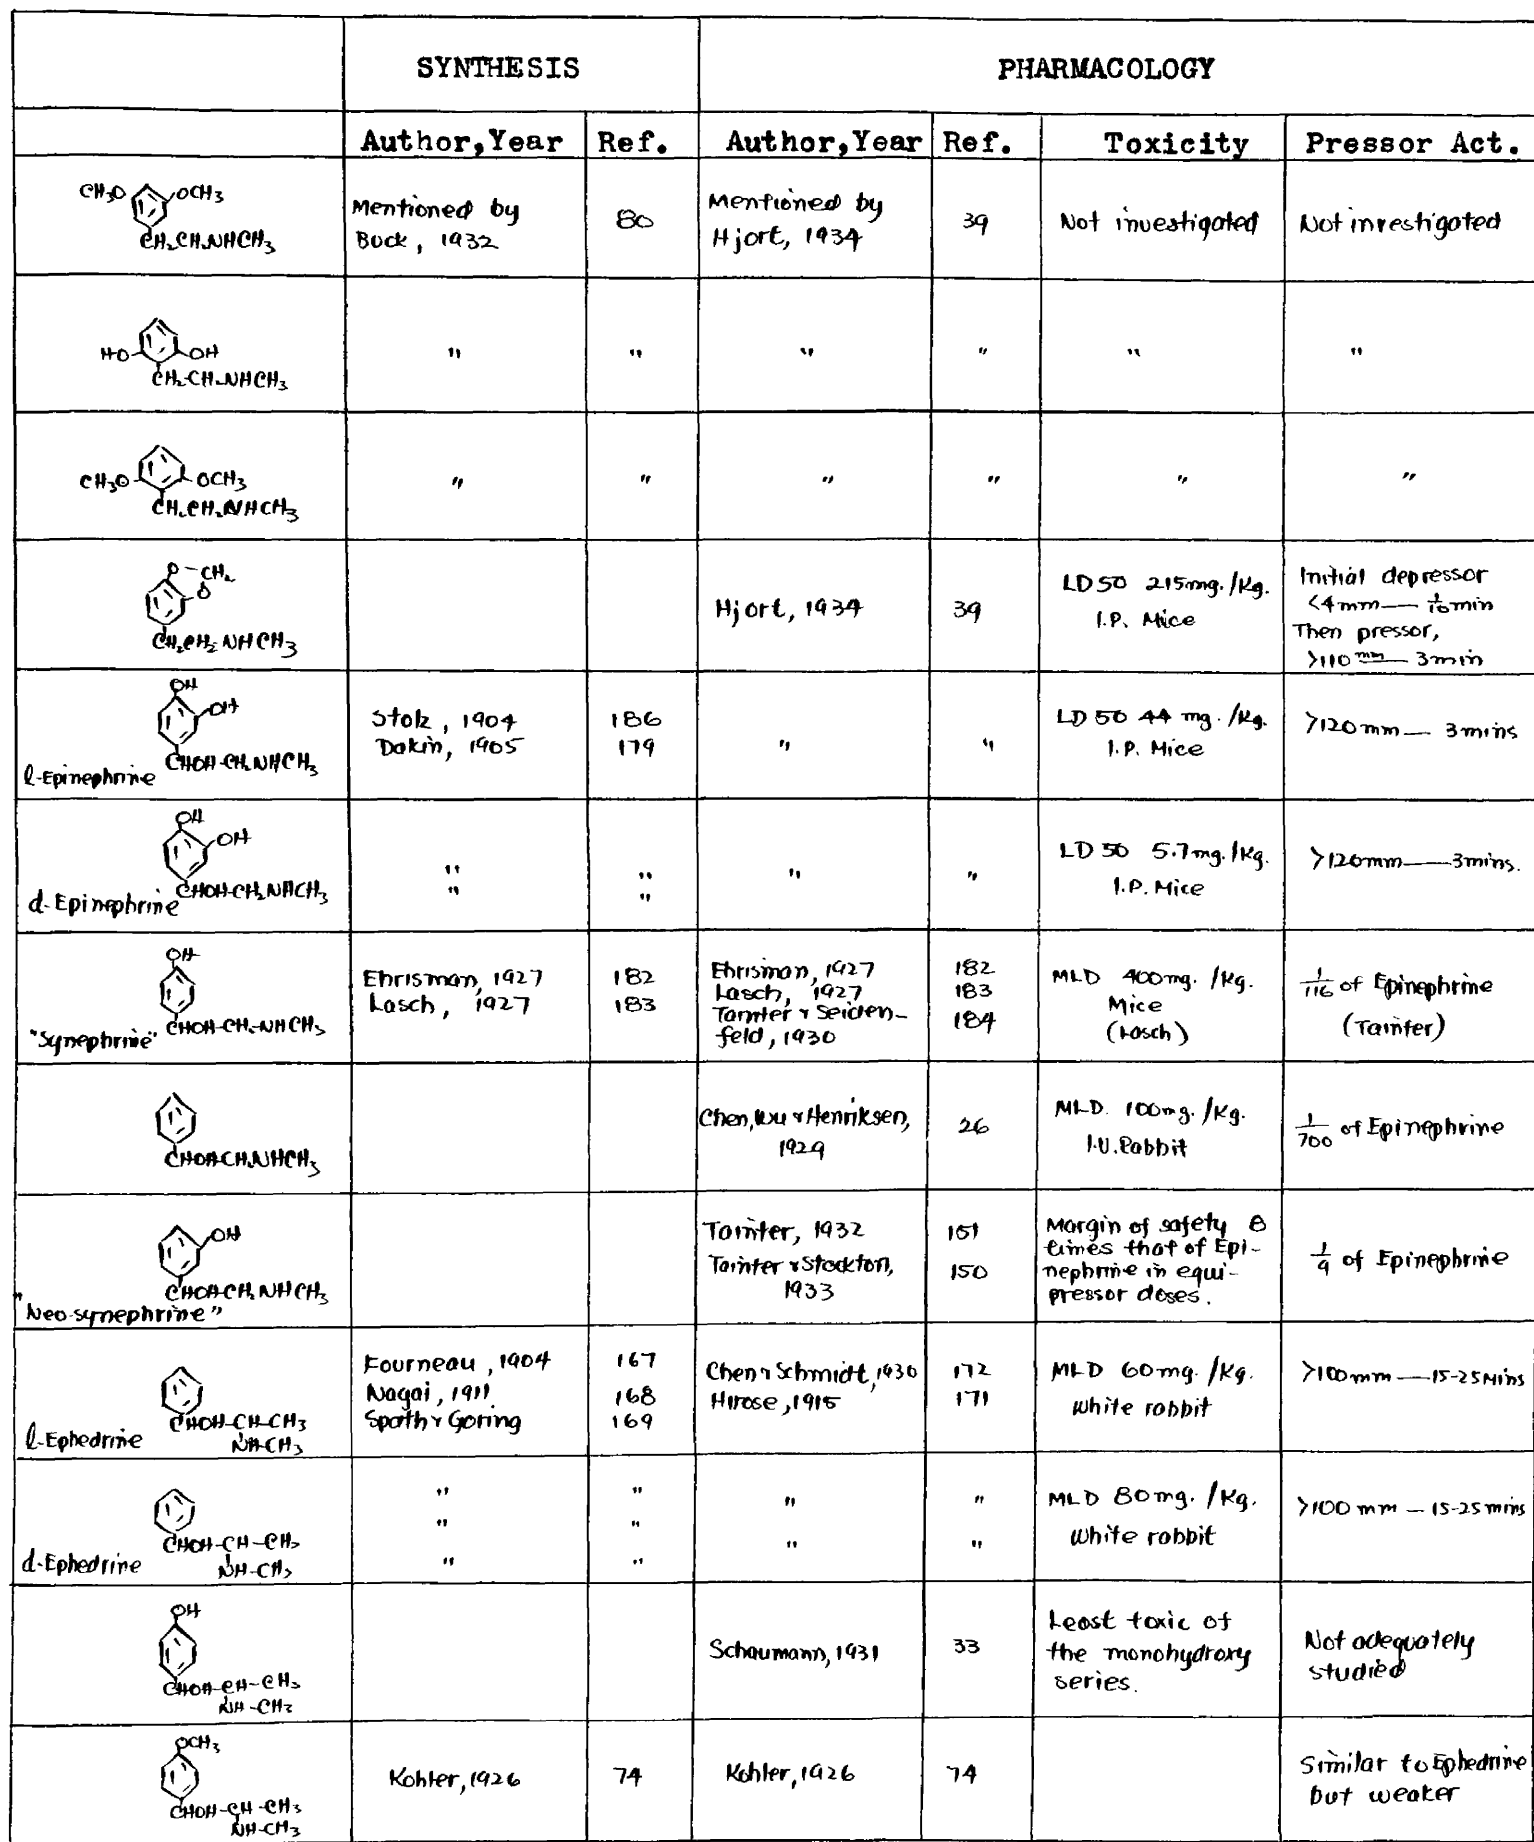 SYNTHESIS
PHARMACOLOGY
Author,Year
Ref.
Author,Year
Ref.
Toxicity
Pressor Act.
CH3O
OCH3
CH2CH2NHCH3
Mentioned by
Buck, 1932
80
Mentioned by
Hjort, 1934
39
Not investigated
Not investigated
HO
OH
CH2-CH2NHCH3
"
"
"
"
"
"
CH3O
OCH3
CH2CH2NHCH3
"
"
"
"
"
"
O-CH2
O
CH2CH2NHCH3
Hjort, 1934
39
LD50 215mg./Kg.
I.P. Mice
Initial depressor
<4mm — 1/10 min
Then pressor,
>110 mm — 3min
OH
OH
CHOH-CH2NHCH3
l-Epinephrine
Stolz, 1904
Dakin, 1905
186
179
"
"
LD 50 44 mg./Kg.
I.P. Mice
>120mm — 3mins
OH
OH
CHOH-CH2NHCH3
d-Epinephrine
"
"
"
"
"
"
LD 50 5.7mg./Kg.
I.P. Mice
>120mm — 3mins.
OH
CHOH-CH2-NHCH3
"Synephrine"
Ehrisman, 1927
Lasch, 1927
182
183
Ehrisman, 1927
Lasch, 1927
Tainter & Seiden-
feld, 1930
182
183
184
MLD 400mg./Kg.
Mice
(Lasch)
1/116 of Epinephrine
(Tainter)
CHOHCH2NHCH3
Chen, Wu & Henriksen,
1929
26
MLD. 100mg./Kg.
I.V. Rabbit
1/700 of Epinephrine
OH
CHOHCH2NHCH3
"Neo-synephrine"
Tainter, 1932
Tainter & Stockton,
1933
151
150
Margin of safety 8
times that of Epi-
nephrine in equi-
pressor doses.
1/9 of Epinephrine
CHOH-CH-CH3
NH-CH3
l-Ephedrine
Fourneau, 1904
Nagai, 1911
Spath & Goring
167
168
169
Chen & Schmidt, 1930
Hirose, 1915
172
171
MLD 60mg./Kg.
White rabbit
>100mm — 15-25Mins
CHOH-CH-CH3
NH-CH3
d-Ephedrine
"
"
"
"
"
"
"
"
"
"
MLD 80mg./Kg.
White rabbit
>100 mm — 15-25 mins
OH
CHOH-CH-CH3
NH-CH3
Schaumann, 1931
33
Least toxic of
the monohydroxy
series.
Not adequately
studied
OCH3
CHOH-CH-CH3
NH-CH3
Kohler, 1926
74
Kohler, 1926
74
Similar to Ephedrine
but weaker